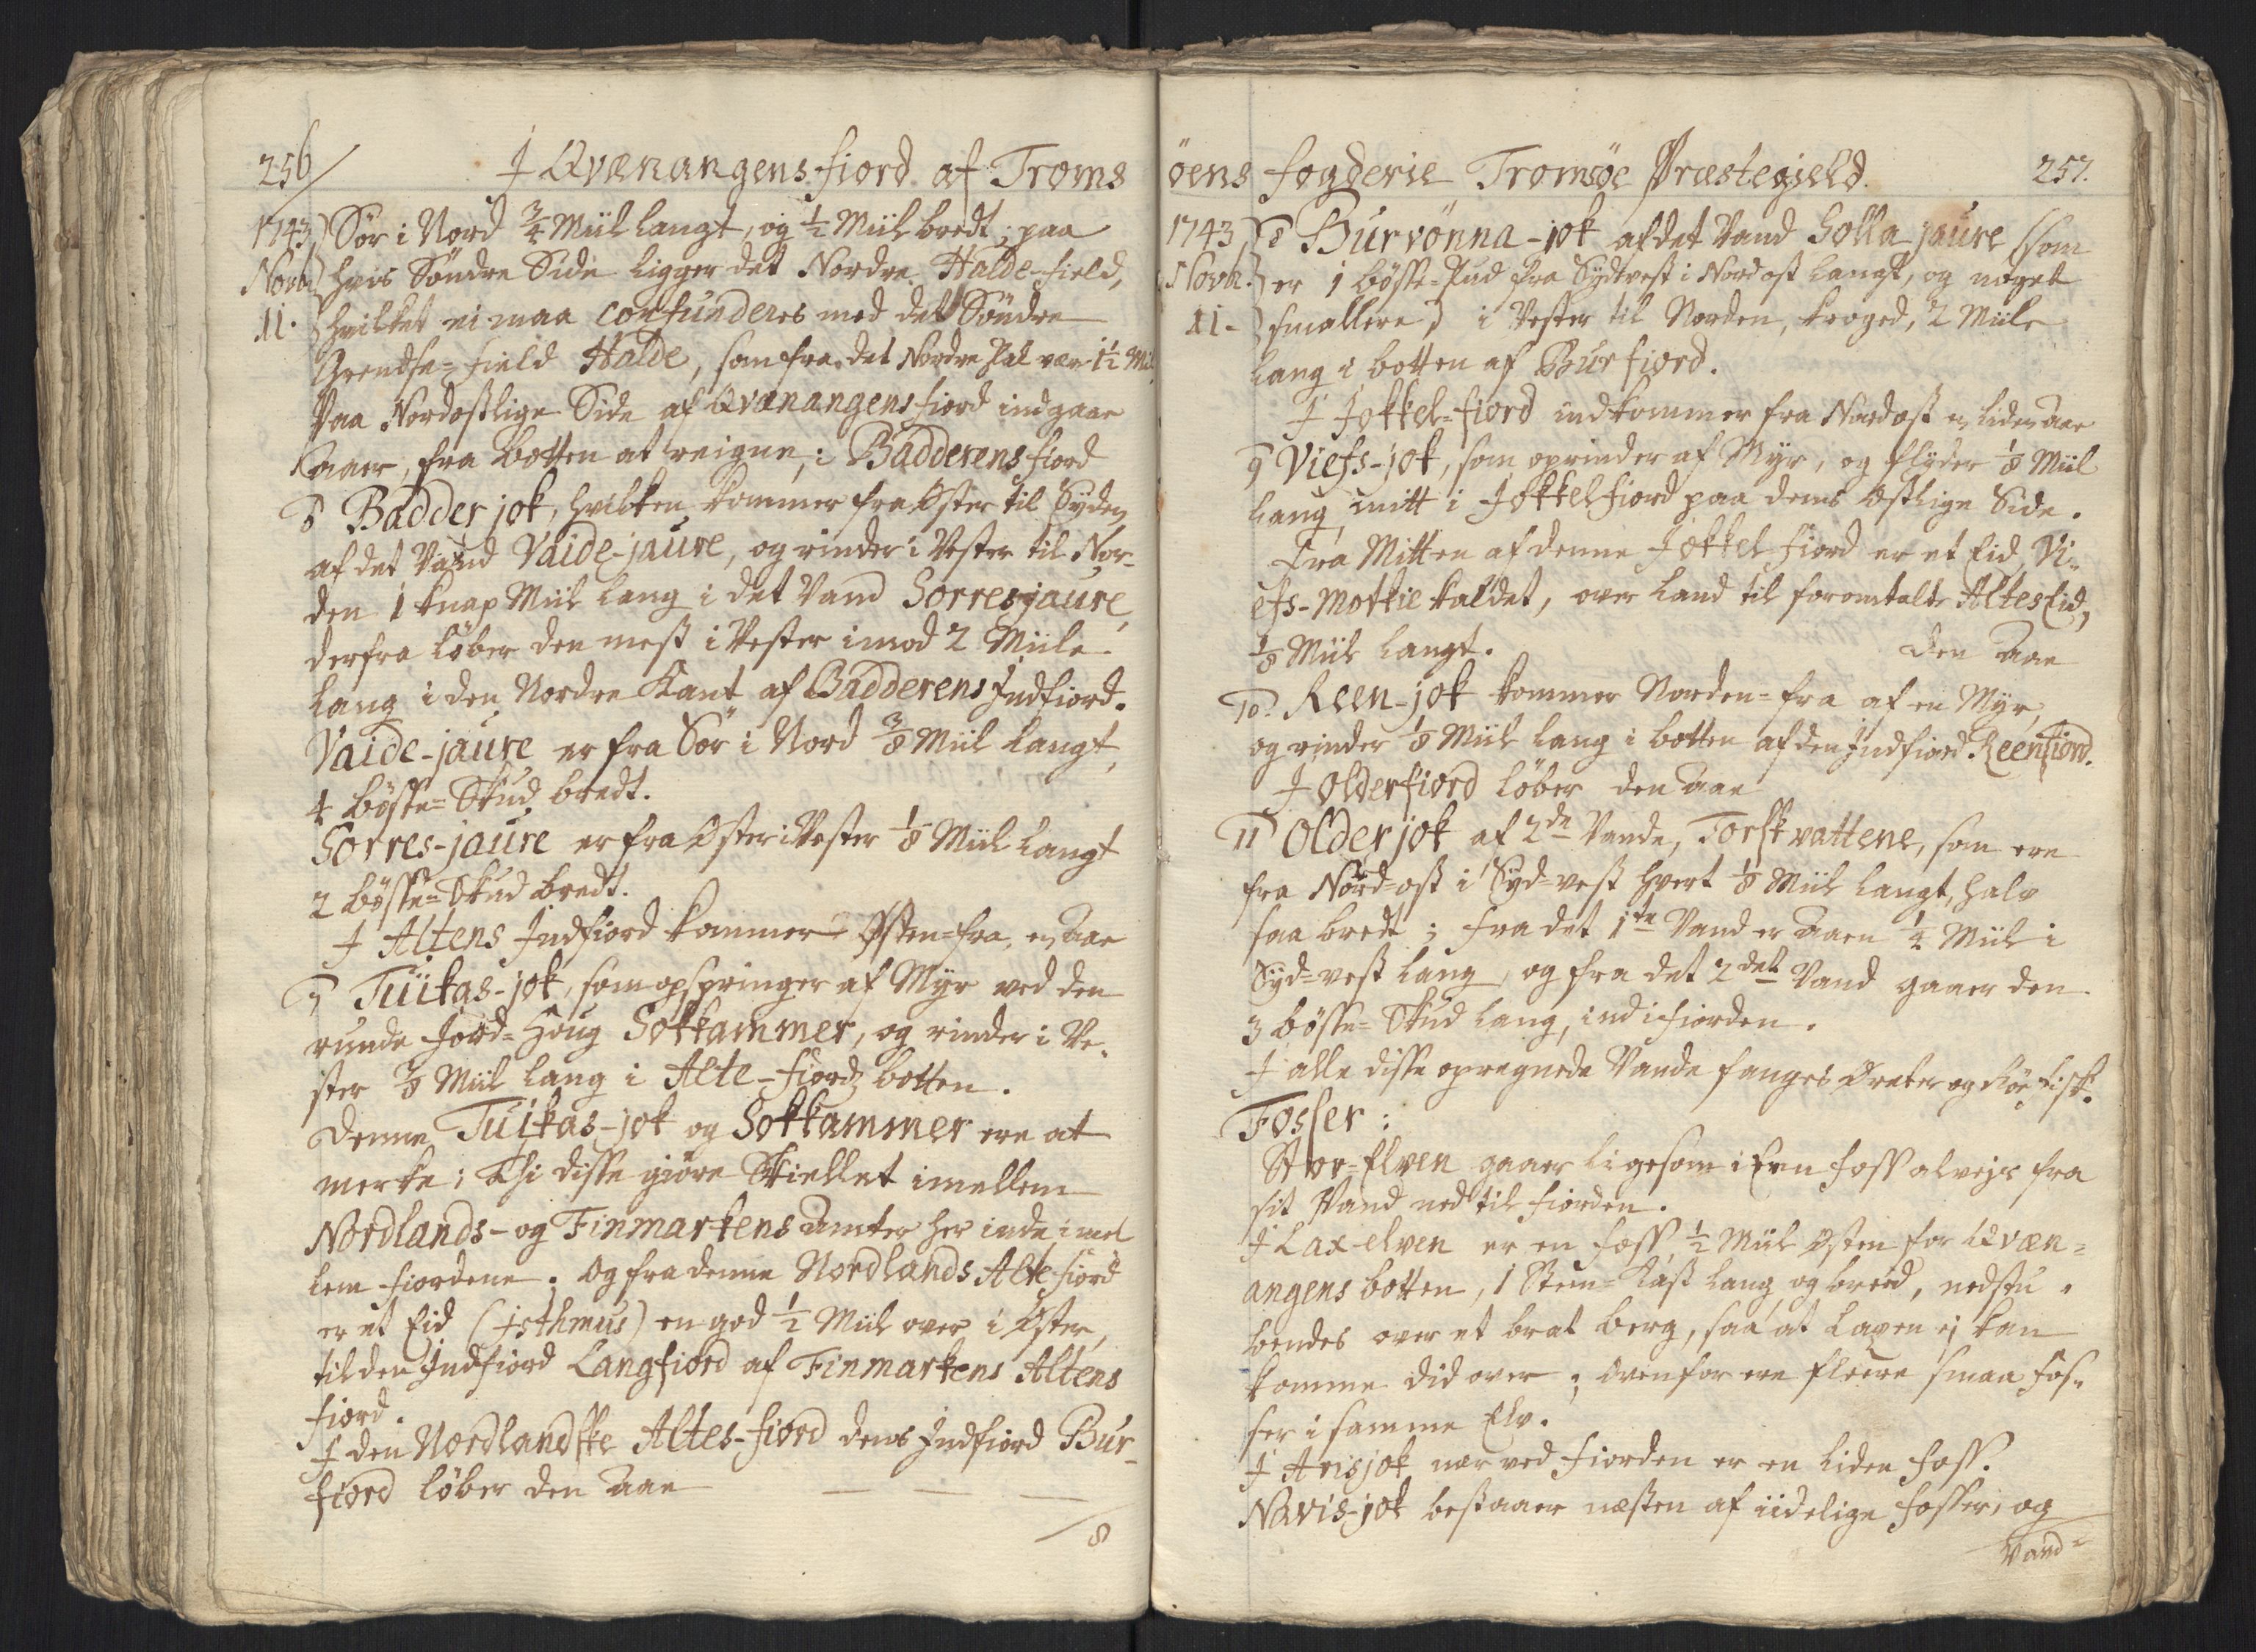 256/ I Qvænangens fiord af Troms
1743) Sør i Nord 3/4 Miil langt, og 1/2 Miil bredt; paa
Novbr) hvis Søndre Side ligger det Nordre Halde-field,
11.) hvilket ei maa confunderes med det Søndre
Grendse-field Halde, som fra det Nordre skal vær 1 1/2 Miil.
Paa Nordostlige Side af Qvænangens fiord indgaar
Aaer, fra botten at reigne, i Badderens fiord
6 Badder jok, hvilken kommer fra Øster til Syden
af det Vand Vaide-jaure, og rinder i Vester til Nor-
den 1 knap Miil lang i det Vand Sorresjaure,
derfra løber den mest i Vester imod 2 Miile
lang i den Nordre Kant af Badderens Indfiord.
Vaide-jaure er fra Sør i Nord 3/8 Miil langt,
4 bøsse-Skud bredt.
Sorres-jaure er fra Øster i Vester 1/8 Miil langt
2 bøsse-Skud bredt.
I Altens Indfiord kommer Østen-fra en Aae
7 Tuikas-jok, som opspringer af Myr ved den
runde Jord-Houg Sokkammer, og rinder i Ve-
ster 1/8 Miil lang i Alte-fiords botten.
Denne Tuikas-jok og Sokkammer ere at
merke; Thi disse giøre Skiellet imellem
Nordlands- og Finmarkens Amter her inde imel
lem fiordene. Og fra denne Nordlands Alte-fiord
er et Eid (Isthmus) en god 1/2 Miil over i Øster,
til den Indfiord Langfiord af Finmarkens Altens
fiord.
I den Nordlandske Altes-fiord dens Indfiord Bur-
fiord løber den Aae — — —
/8
öens fogderie Tromsöe Præstegield. 257.
1743) 8 Burvönna-jok af det Vand Solla jaure (som
Novbr.) er 1 bøsse-skud fra Sydvest i Nordost langt, og noget
11-) smallere) i Vester til Norden, kroged, 2 Miile
lang i botten af Burfiord.
I Jokkel-fiord indkommer fra Nordost en liden Aae
9 Viefs-jok, som oprinder af Myr, og flyder 1/8 Miil
lang, mitt i Jokkelfiord paa dens Østlige Side.
Fra Mitten af denne Jokkel fiord er et Eid, Vi-
efs-Motkie kaldet, over Land til foromtalte Altes Eid,
1/8 Miil langt. Den Aae
10. Reen-jok kommer Norden-fra af en Myr,
og rinder 1/8 Miil lang i botten af den Indfiord Reenfiord.
I Olderfiord løber den Aae
11 Older jok af 2de Vande, Torskvattene, som ere
fra Nord-ost i Syd-vest hvert 1/8 Miil langt, halv
saa bredt; fra det 1te Vand er Aaen 1/4 Miil i
Syd-vest lang, og fra det 2det Vand gaaer den
3 bøsse-Skud lang, ind i fiorden.
I alle disse opregnede Vande fanges Ørreter og Røe fisk.
Fosser:
Stor-Elven gaaer ligesom i Een foss alvejs fra
sit Vand ned til fiorden.
I Lax-elven er en foss, 1/2 Miil Østen for Qvæn-
angens botten, 1 Steen-Kast lang og breed, nedstu-
bendes over et brat berg, saa at Laxen ej kan
komme did over; Ovenfor ere fleere smaa fos-
ser i samme Elv.
I Avisjok nær ved fiorden er en liden foss.
Navis-jok bestaaer næsten af iidelige fosser, og
Vand-